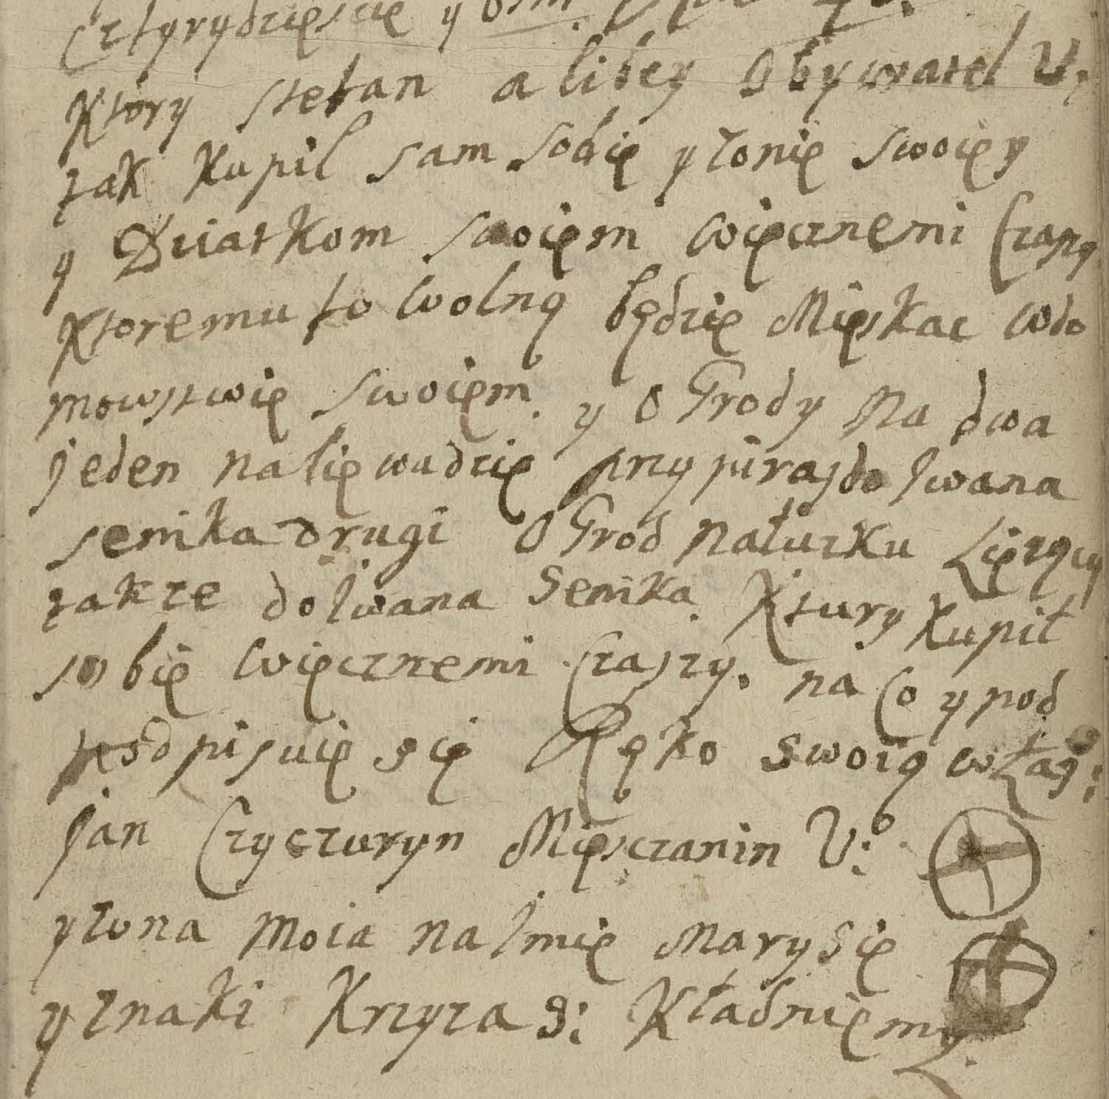 Cztyrydziescie y osm.
Ktory stefan a libey Obywatel U:
zak Kupil sam sobię y zonię swoięy
y Dziatkom swoięm więcznemi Czasy
Ktoremu to wolną będzię Mięskac wdo
mowstwię swoięm. y OGrody Na dwa
jeden na lięwadzię przypirasdo Iwana
senika drugi OGrod nałuzku Liężący
zakze do Iwana Senika. Ktury Kupił
sobię więcznemi Czaszy. na Co y pod
podpisuię się Ręko swoią włas:
jan Czyczuryn Mięsczanin U:
y zona moia na Imię Marysię
y znaki Krzyza S: Kładnięmy.